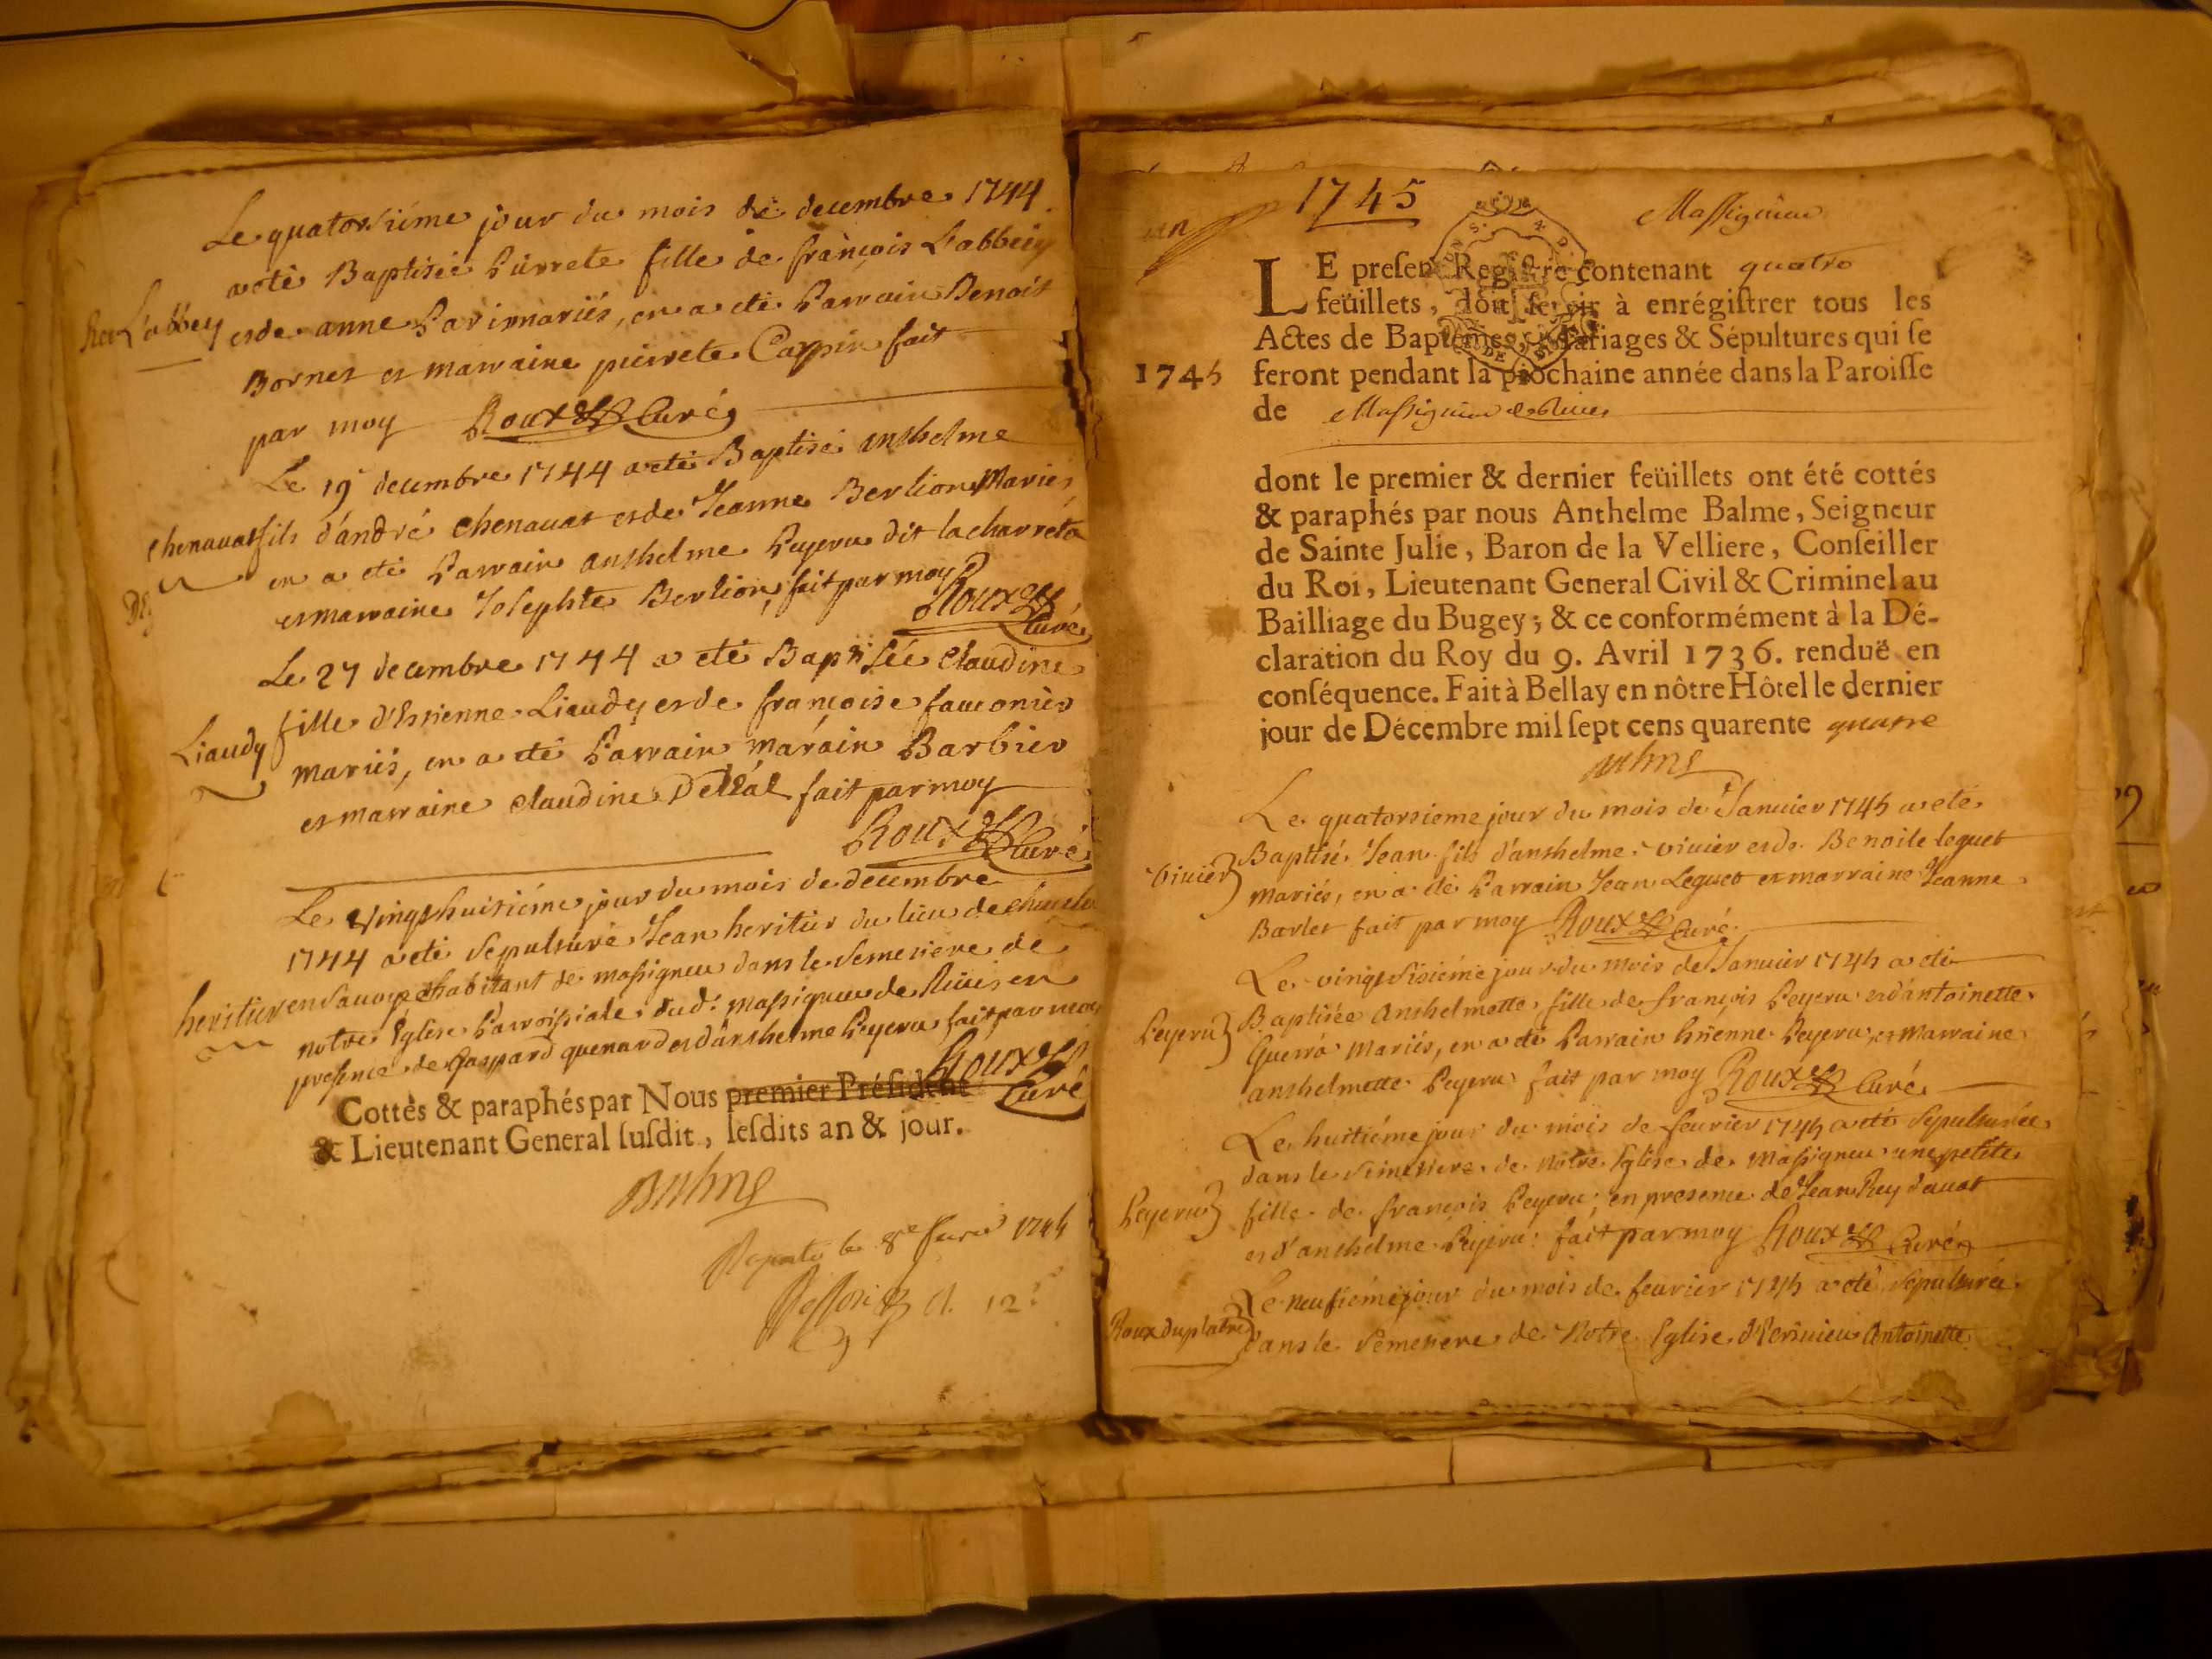 Le quatorsiéme jour du mois de decembre 1744
a eté Baptisée Pierrete fille de françois Labbey
Labbey
et de anne mariés, en a eté Parrain Benoit
Bornet et marraine pierrete Carrin fait
par moy Roux Curé
Le 19 decembre 1744 a eté Baptisé anthelme
chenavat
fils d'andré chenavat et de Jeanne Berlion Mariés
en a eté Parrain anthelme Peyeru dit la charreta
et marraine Josephte Berlion, fait par moy
Roux
Curé
Le 27 decembre 1744 a eté Baptisée claudine
Liaudy
fille d'Estienne Liaudy et de françoise fauconier
mariés, en a eté Parrain marain Barbier
et marraine claudine fait par moy
Roux Curé
Le vingt huitiéme jour du mois de decembre
1744 a eté sepulturé Jean heritier du lieu de
heritier
en Savoye habitant de massigneu dans le semetiere de
notre Eglise Parroissiale dud. massigneu de Rives en
presence de gaspard quenard et d'anthelme Peyeru fait par moy
Roux
Curé
Cottés & paraphés par Nous premier Président
& Lieutenant General susdit, lesdits an & jour.
Balme
le 8e 1745
1745
Massigneu
LE present Registre contenant quatre
feüillets, doit servir à enrégistrer tous les
Actes de Baptêmes, Mariages & Sépultures qui se
1745
feront pendant la prochaine année dans la Paroisse
de Massigneu de Rives
dont le premier & dernier feüillets ont été cottés
& paraphés par nous Anthelme Balme, Seigneur
de Sainte Julie, Baron de la Velliere, Conseiller
du Roi, Lieutenant General Civil & Criminel au
Bailliage du Bugey; & ce conformément à la Dé-
claration du Roy du 9. Avril 1736. renduë en
conséquence. Fait à Bellay en nôtre Hôtel le dernier
jour de Décembre mil sept cens quarente quatre
Balme
Le quatorsieme jour du mois de Janvier 1745 a eté
Baptisé Jean fils d'anthelme vivier et de Benoite leguet
vivier
mariés, en a eté Parrain Jean Leguet et marraine Jeanne
Barlet fait par moy Roux Curé
Le vingt sisiéme jour du mois de Janvier 1745 a eté
Baptisée Anthelmette fille de françois Peyeru et d'antoinette
Peyeru
Guerra Mariés, en a eté Parrain Etienne Peyeru, et Marraine
anthelmette Peyeru fait par moy Roux Curé
Le huitiéme jour du mois de fevrier 1745 a eté sepulturée
dans le semetiere de notre Eglise de Massigneu une petite
Peyeru
fille de françois Peyeru; en presence de Jean Rey davat
et d'anthelme Peyeru: fait par moy Roux Curé
Le neufiéme jour du mois de fevrier 1745 a eté sepulturée
Roux duplatre
dans le semetiere de Notre Eglise Antoinette